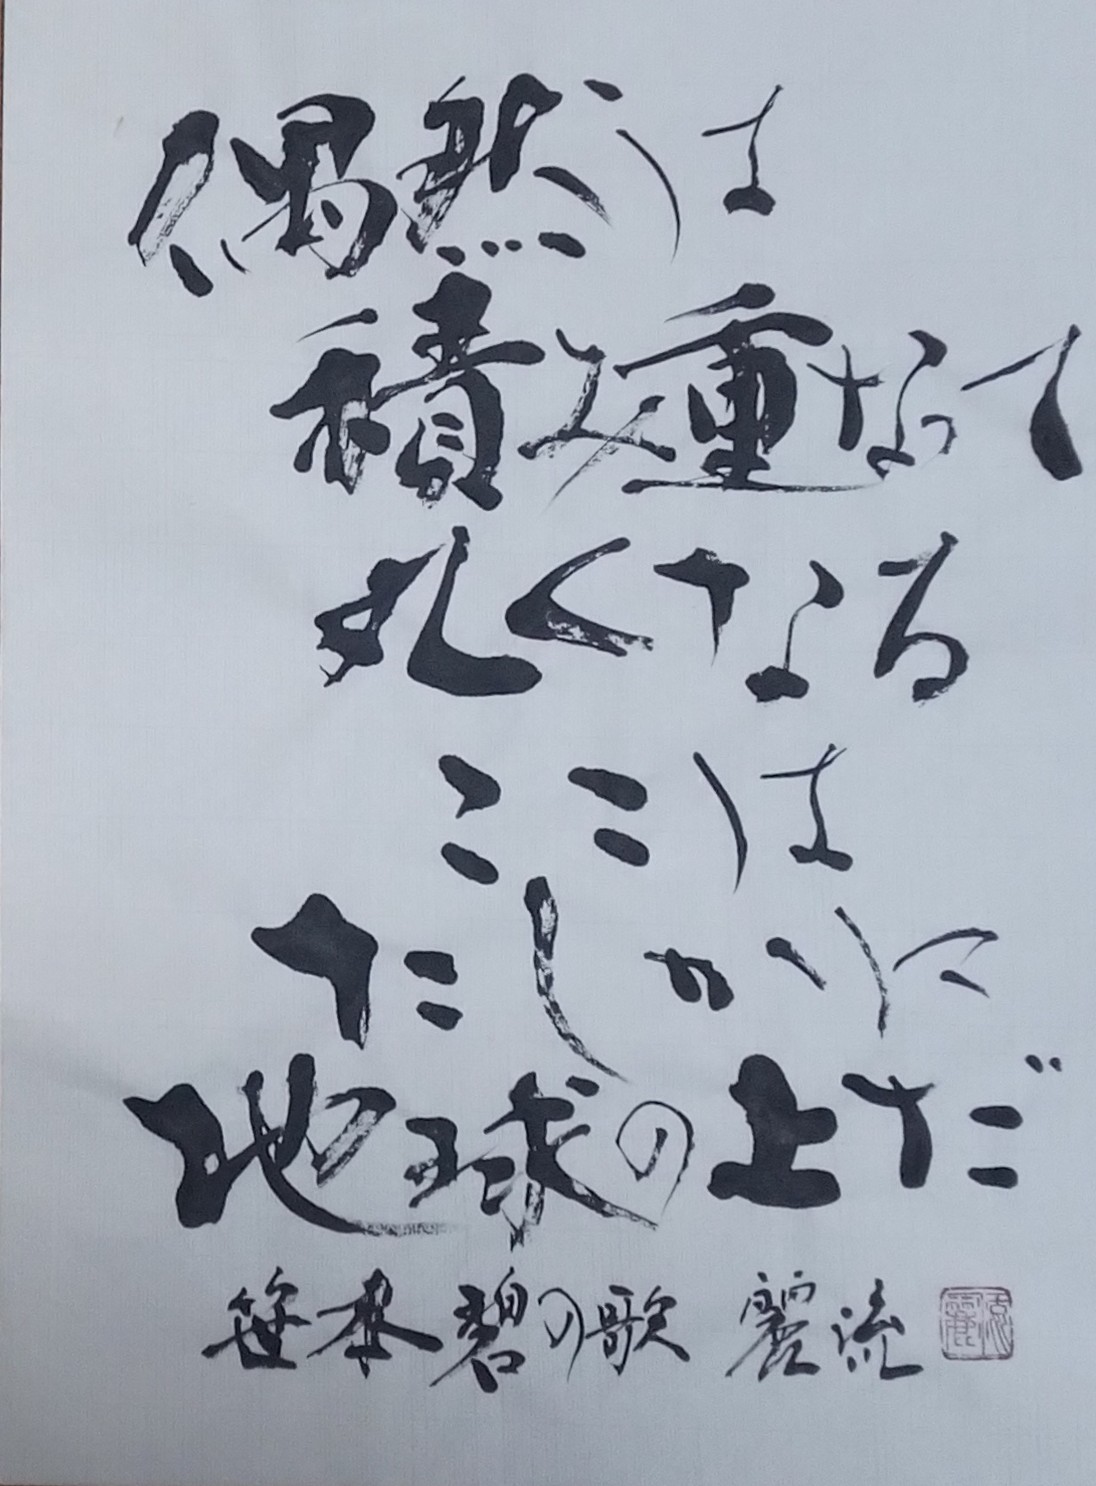 偶然は
積み重なって
丸くなる
ここは
たしかに
地球の上だ
笹本碧の歌 麗流
麗流